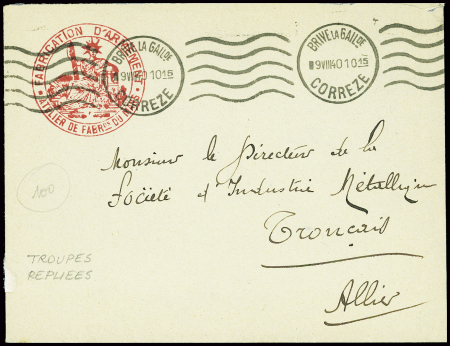 FABRICATION D'ARMEMENT
ATELIER DE FABR^on DU
BRIVE LA GAIL^DE
9 VIII 40 10 15
CORREZE
BRIVE LA GAIL^DE
9 VIII 40 10 15
CORREZE
Monsieur le Directeur de la
Société d'Industrie Métallique
Tronçais
Allier
100
TROUPES
REPLIEES